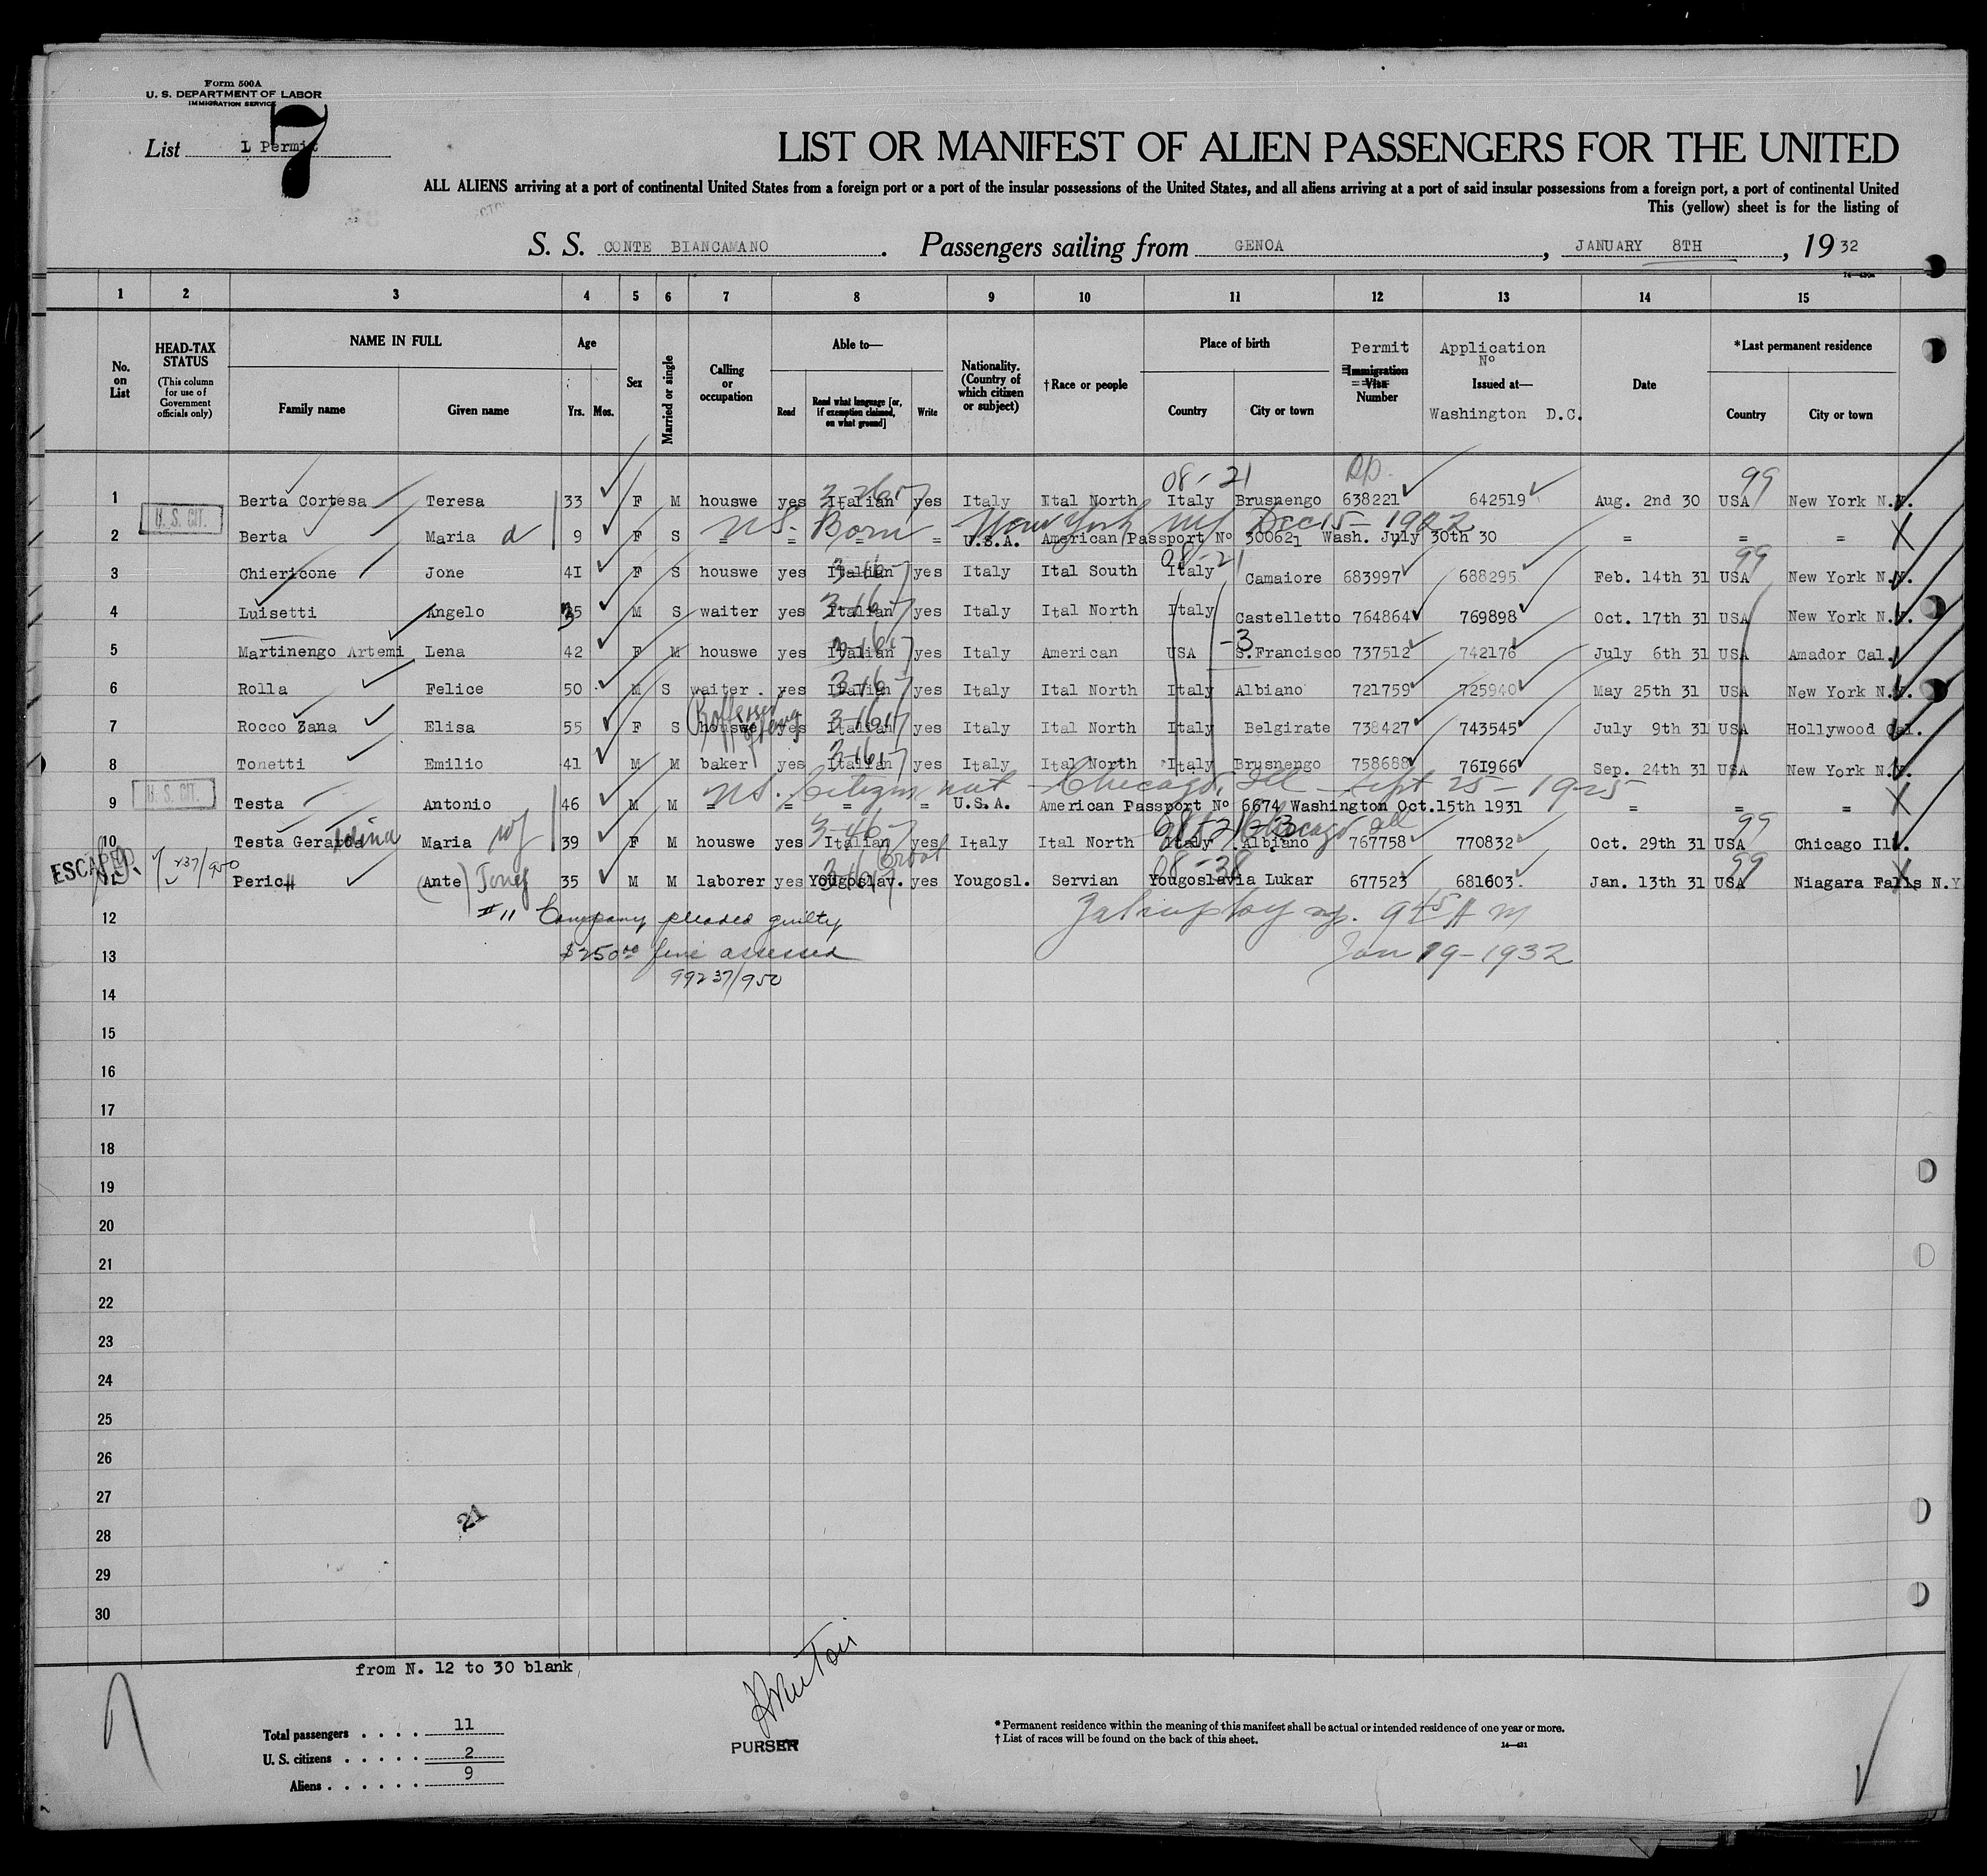 Form 500A
U. S. DEPARTMENT OF LABOR
IMMIGRATION SERVICE
List L Permit
7
LIST OR MANIFEST OF ALIEN PASSENGERS FOR THE UNITED
ALL ALIENS arriving at a port of continental United States from a foreign port or a port of the insular possessions of the United States, and all aliens arriving at a port of said insular possessions from a foreign port, a port of continental United
This (yellow) sheet is for the listing of
S. S. CONTE BIANCAMANO. Passengers sailing from GENOA, JANUARY 8TH, 1932
1 2 3 4 5 6 7 8 9 10 11 12 13 14 15
No. on List
HEAD-TAX STATUS (This column for use of Government officials only)
NAME IN FULL
Family name Given name
Age
Yrs. Mos.
Sex
Married or single
Calling or occupation
Able to—
Read
Read what language [or, if exemption claimed, on what ground]
Write
Nationality. (Country of which citizen or subject)
† Race or people
Place of birth
Country City or town
Permit
Immigration Visa Number
Application Nº
Issued at—
Washington D.C.
Date
*Last permanent residence
Country City or town
08-21 99
1 Berta Cortesa Teresa 33 F M houswe yes Italian yes Italy Ital North Italy Brusnengo 638221 642519 Aug. 2nd 30 USA New York N.Y.
U. S. CIT.
US. Born New York NY Dec 15-1922
2 Berta Maria d 9 F S = = = = U.S.A. American Passport Nº 300621 Wash. July 30th 30 = = =
08-21 99
3 Chiericone Jone 41 F S houswe yes Italian yes Italy Ital South Italy Camaiore 683997 688295 Feb. 14th 31 USA New York N.Y.
4 Luisetti Angelo 35 M S waiter yes Italian yes Italy Ital North Italy Castelletto 764864 769898 Oct. 17th 31 USA New York N.Y.
-3
5 Martinengo Artemi Lena 42 F M houswe yes Italian yes Italy American USA S.Francisco 737512 742176 July 6th 31 USA Amador Cal.
6 Rolla Felice 50 M S waiter. yes Italian yes Italy Ital North Italy Albiano 721759 725940 May 25th 31 USA New York N.Y.
7 Rocco Zana Elisa 55 F S houswe yes Italian yes Italy Ital North Italy Belgirate 738427 743545 July 9th 31 USA Hollywood Cal.
8 Tonetti Emilio 41 M M baker yes Italian yes Italy Ital North Italy Brusnengo 758688 761966 Sep. 24th 31 USA New York N.Y.
U. S. CIT.
US. Citizen nat Chicago, Ill Sept 25-1925
9 Testa Antonio 46 M M = = = = U.S.A. American Passport Nº 6674 Washington Oct.15th 1931 = = =
99
10 Testa Geraldina Maria wf 39 F M houswe yes Italian yes Italy Ital North Italy Albiano 767758 770832 Oct. 29th 31 USA Chicago Ill.
ESCAPED.
237/950
Croat 08-38 99
11 Perich (Ante) Tony 35 M M laborer yes Yougoslav. yes Yougosl. Servian Yougoslavia Lukar 677523 681603. Jan. 13th 31 USA Niagara Falls N.Y
12 #11 Company pleaded guilty
13 $250.00 fine assessed Jan 19-1932
99237/950
14
15
16
17
18
19
20
21
22
23
24
25
26
27
21
28
29
30
from N. 12 to 30 blank
Total passengers .... 11
U. S. citizens ..... 2
Aliens ...... 9
PURSER
* Permanent residence within the meaning of this manifest shall be actual or intended residence of one year or more.
† List of races will be found on the back of this sheet.
14—431